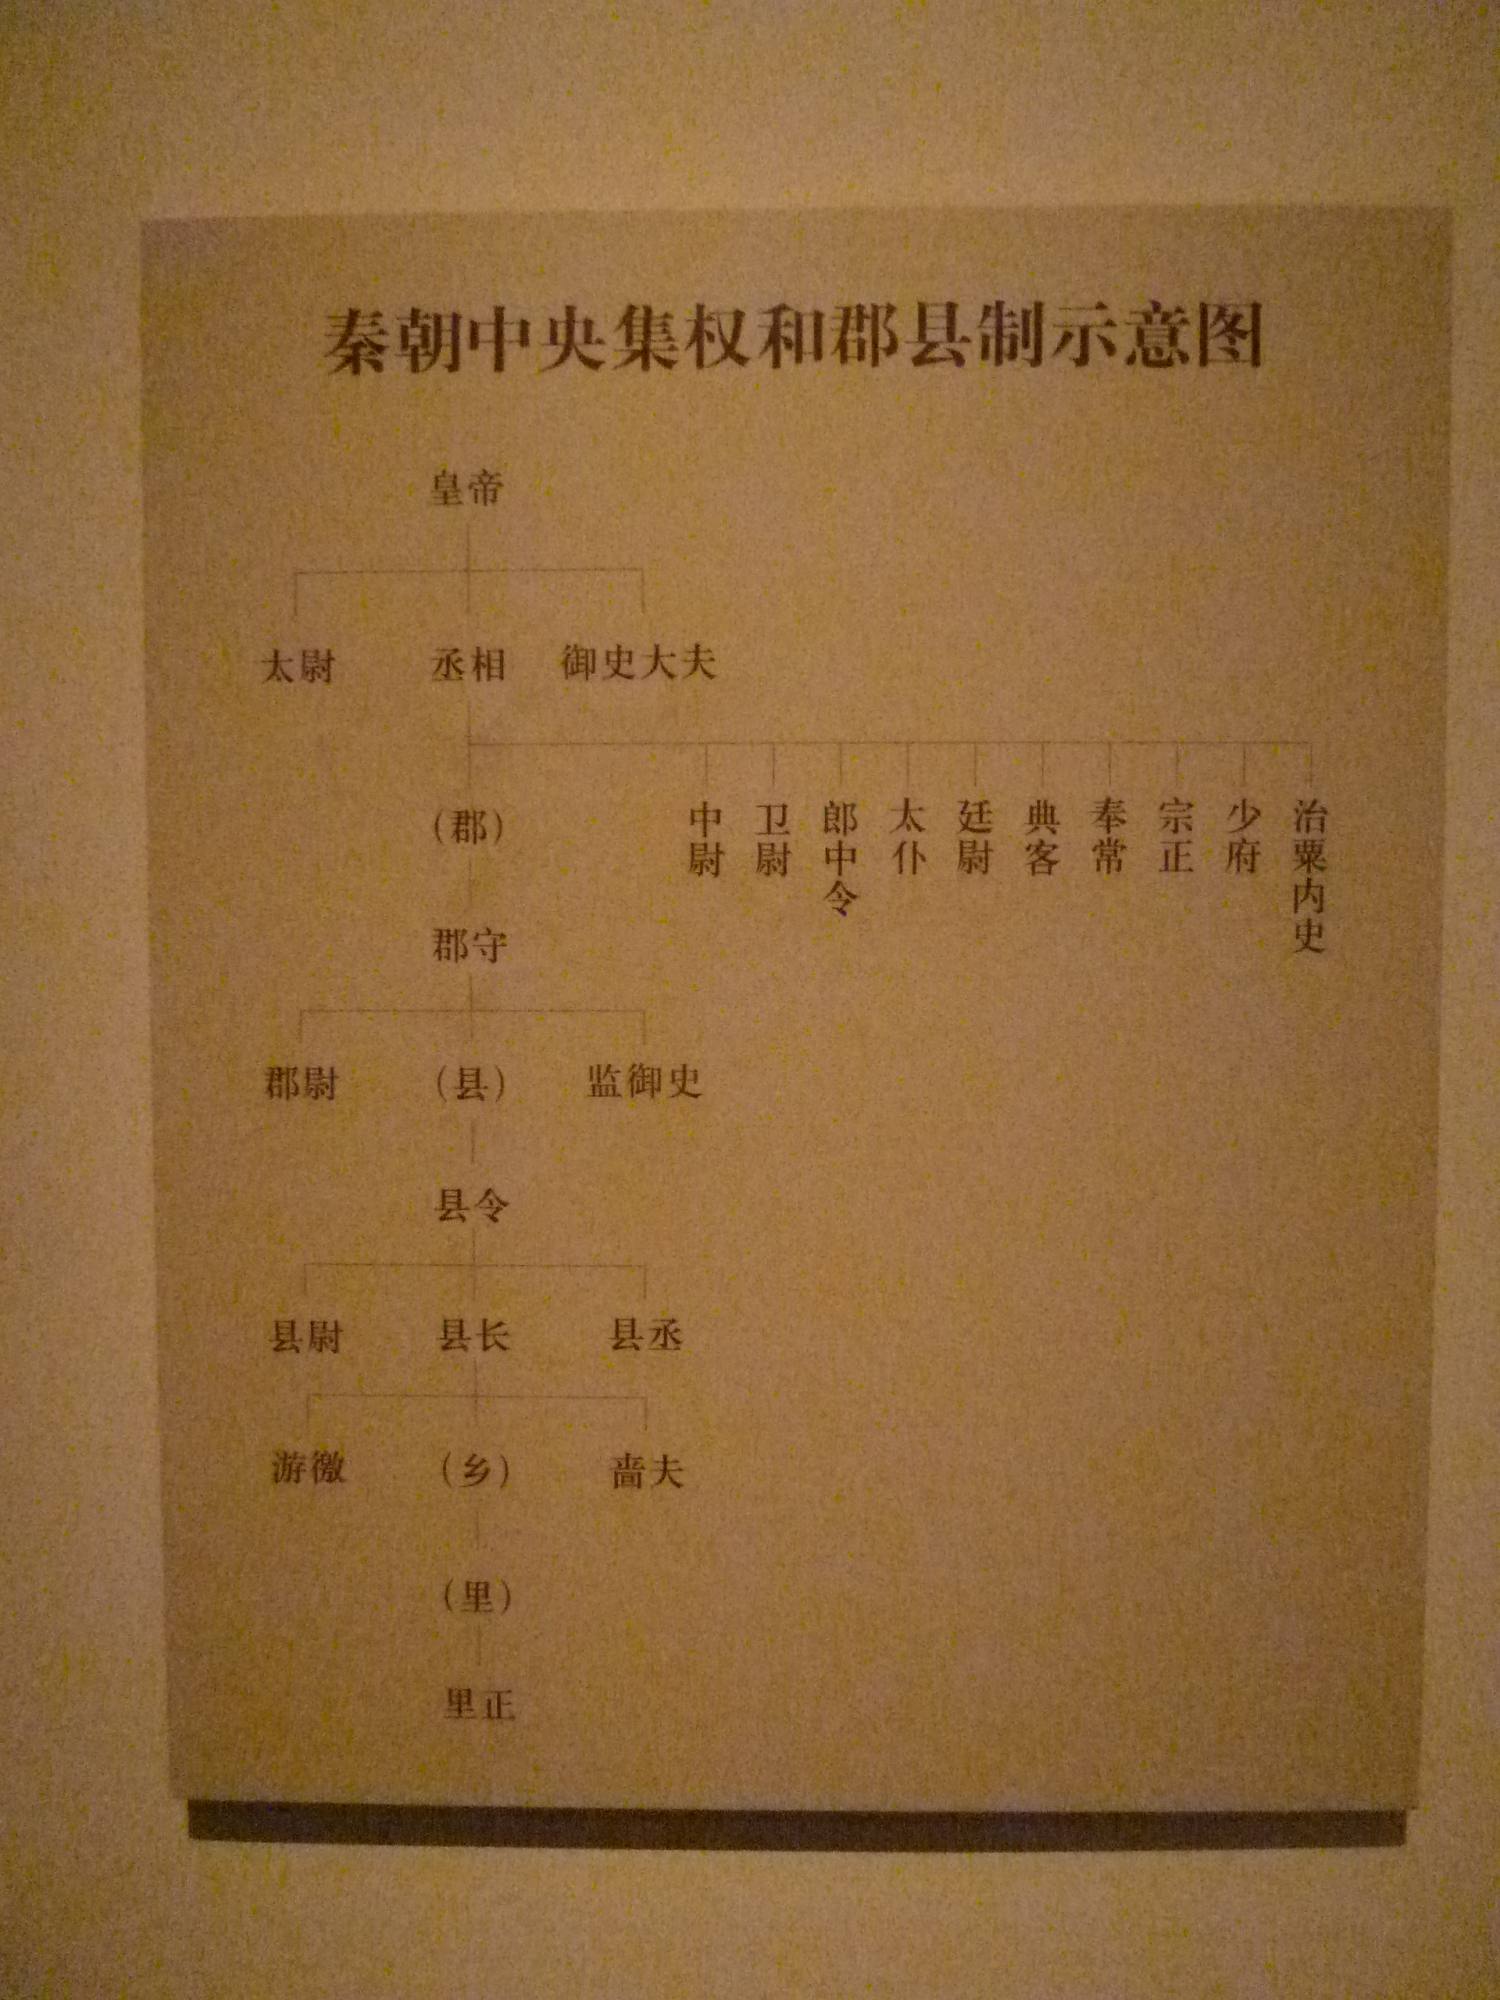 秦朝中央集权和郡县制示意图
皇帝
太尉 丞相 御史大夫
(郡)
中尉
卫尉
郎中令
太仆
廷尉
典客
奉常
宗正
少府
治粟内史
郡守
郡尉 (县) 监御史
县令
县尉 县长 县丞
游徼 (乡) 啬夫
(里)
里正